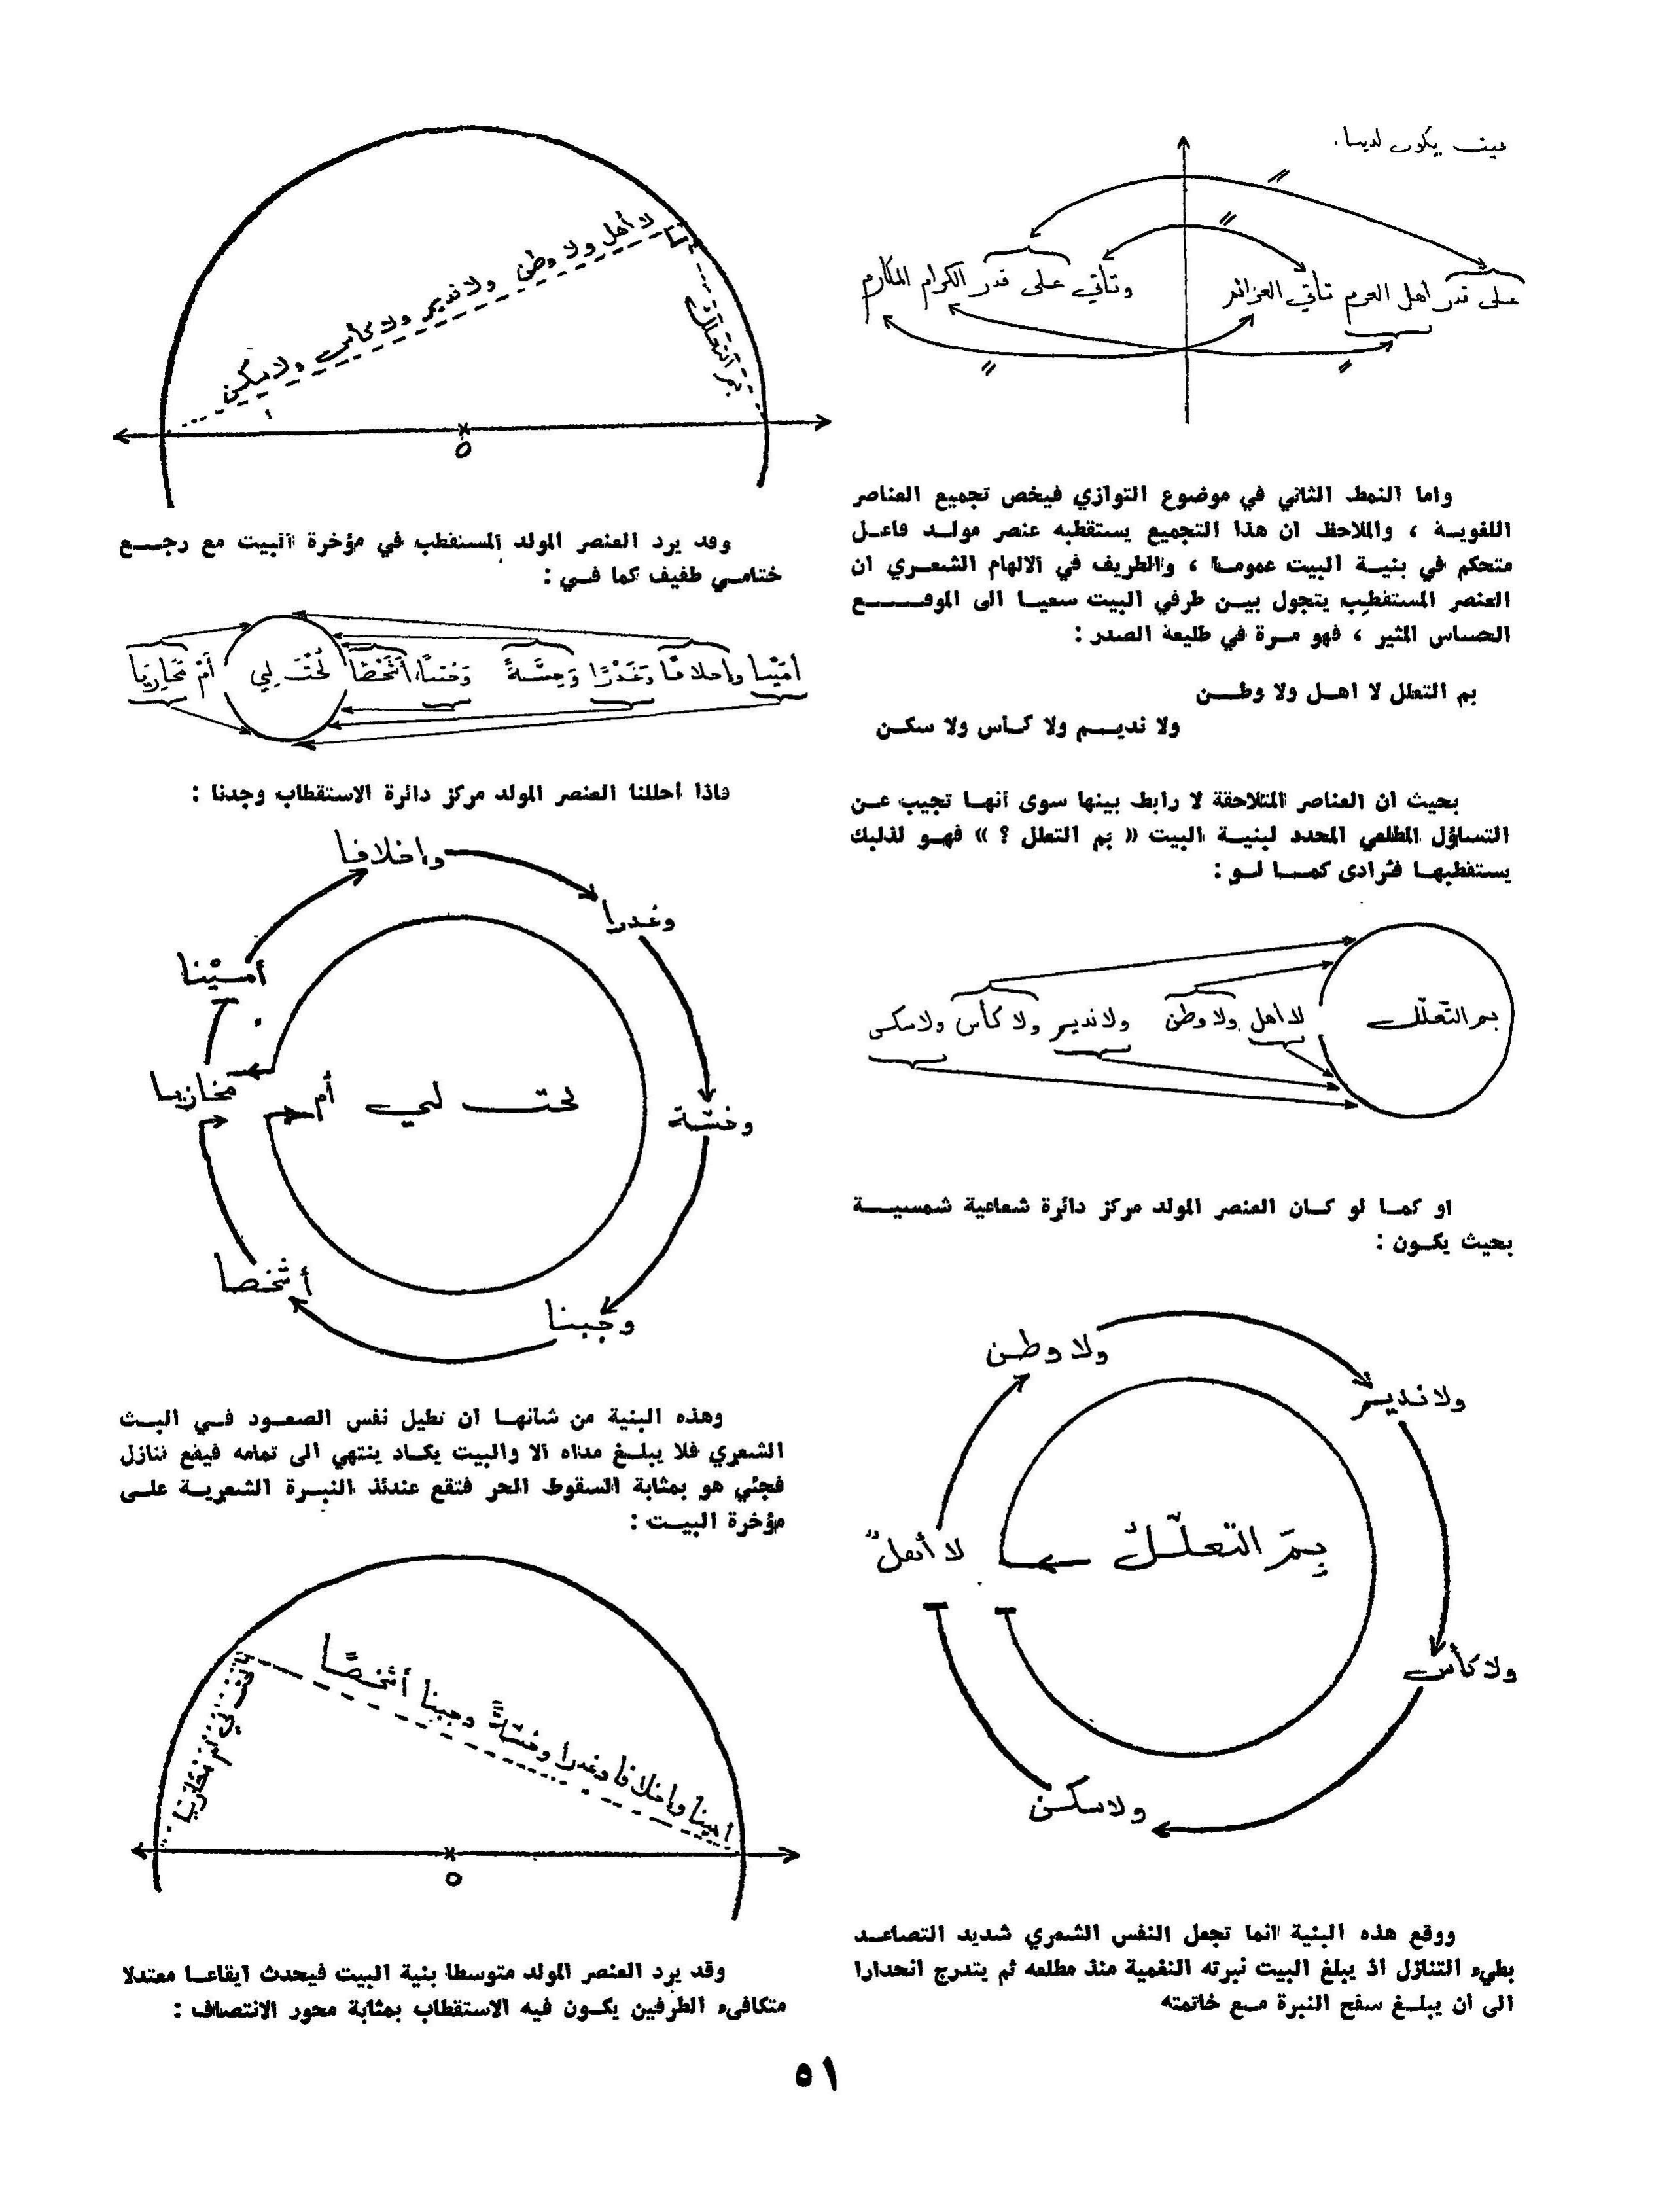 بحيث يكون لدينا.
على قدر أهل العزم تأتي العزائم وتأتي على قدر الكرام المكارم
واما النمط الثاني في موضوع التوازي فيخص تجميع العناصر
اللغويـة ، والملاحظ ان هذا التجميع يستقطبه عنصر مولـد فاعـل
متحكم في بنيـة البيت عمومـا ، والطريف في الالهام الشعـري ان
العنصر المستقطب يتجول بيـن طرفي البيت سعيـا الى الموقـــع
الحساس المثير ، فهو مـرة في طليعة الصدر :
بم التعلل لا اهـل ولا وطـن
ولا نديـم ولا كـأس ولا سكـن
بحيث ان العناصر المتلاحقة لا رابط بينها سوى أنهـا تجيب عـن
التساؤل المطلعي المحدد لبنيـة البيت « بم التعلل ؟ » فهـو لذلك
يستقطبهـا فرادى كمـا لـو :
بم التعلّل
لا أهل ولا وطن ولا نديم ولا كأس ولا سكن
او كمـا لو كـان العنصر المولد مركز دائرة شعاعية شمسيـــة
بحيث يكـون :
ولا وطن
ولا نديم
لا أهلٌ
بِمَ التعلّلُ
ولا كأس
ولا سكن
ووقع هذه البنية انما تجعل النفس الشعري شديد التصاعـد
بطيء التنازل اذ يبلغ البيت نبرته النغمية منذ مطلعه ثم يتدرج انحدارا
الى ان يبلـغ سفح النبرة مـع خاتمته
لا أهل ولا وطن ولا نديم ولا كأس ولا سكن
بم التعلل
٥
وقد يرد العنصر المولد المستقطب في مؤخرة البيت مع رجـــع
ختامـي طفيف كما فـي :
أمَيْنا وإخلافًا وَغَدْرًا وَخِسَّةً وَجُبْنًا أشَخْصًا لُحْتَ لِي أمْ مَخَازِيَا
فاذا أحللنا العنصر المولد مركز دائرة الاستقطاب وجدنا :
وإخلافا
وغدرا
أمَيْنا
مخازيا
لحت لي أم
وخسّة
أشخصا
وجبنا
وهذه البنية من شأنهـا ان تطيل نفس الصعـود فـي البـث
الشعري فلا يبلـغ مداه الا والبيت يكـاد ينتهي الى تمامه فيقع تنازل
فجئي هو بمثابة السقوط الحر فتقع عندئذ النبـرة الشعريـة علـى
مؤخرة البيـت :
لحت لي أم مخازيا
أمينا وإخلافا وغدرا وخسّةً وجبنا أشخصًا
٥
وقد يرد العنصر المولد متوسطا بنية البيت فيحدث ايقاعـا معتدلا
متكافىء الطرفين يكـون فيه الاستقطاب بمثابة محور الانتصاف :
٥١